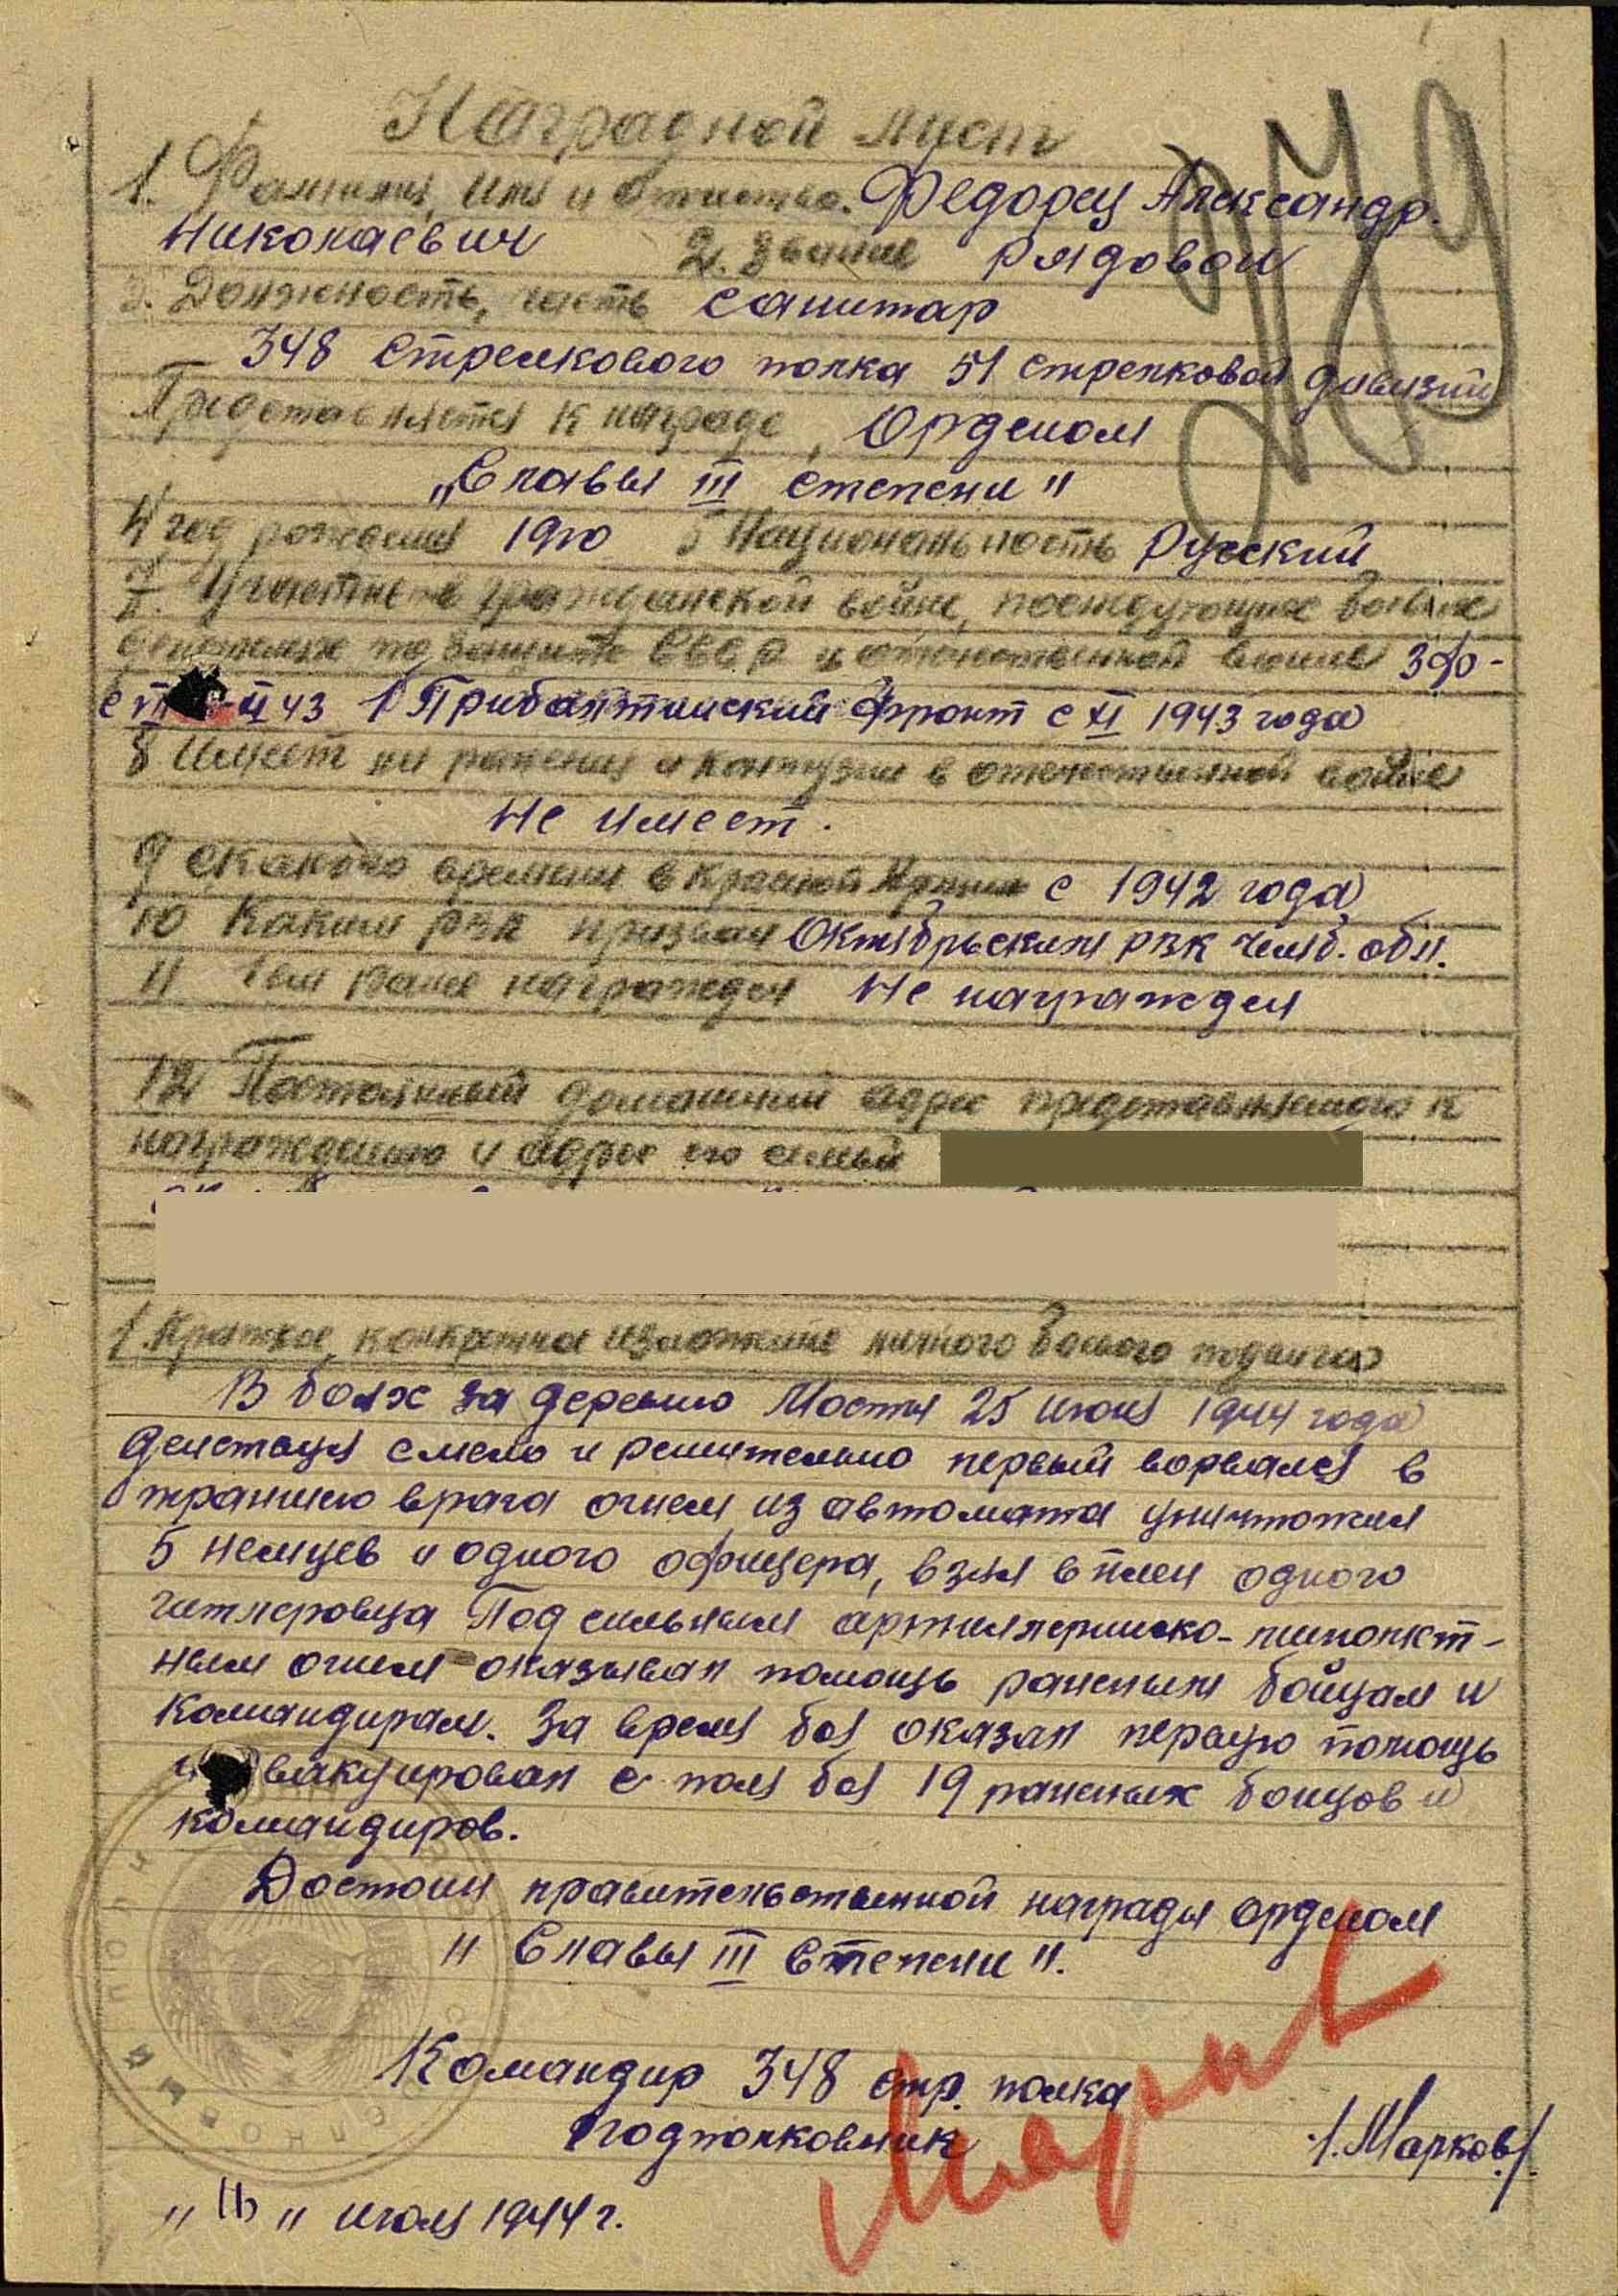 Наградной лист
1. Фамилия, имя и отчество. Федорец Александр.
Николаевич 2. Звание рядовой
3. Должность, часть санитар
348 стрелкового полка 51 стрелковой дивизии
Представляется к награде, Орденом
„Славы III степени"
4 год рождения 1910 5 Национальность Русский
7. Участие в гражданской войне, последующих боевых
действиях по защите СССР и отечественной войне
43 1 Прибалтийский фронт с XI 1943 года
8 Имеет ли ранения и контузии в отечественной войне
Не имеет.
9 С какого времени в Красной Армии с 1942 года
10 Каким РВК призван Октябрьским РВК Челяб. обл.
11 Чем ранее награжден Не награжден
12 Постоянный домашний адрес представляемого к
награждению и адрес его семьи
1. Краткое, конкретное изложение личного боевого подвига
В боях за деревню Мосты 25 июня 1944 года
действуя смело и решительно первый ворвался в
траншею врага огнем из автомата уничтожил
5 немцев и одного офицера, взял в плен одного
гитлеровца Под сильным артиллерийско-
ным огнем оказывал помощь раненым бойцам и
командирам. За время боя оказал первую помощь
и эвакуировал с поля боя 19 раненых бойцов и
командиров.
Достоин правительственной награды орденом
" Славы III Степени ".
Командир 348 стр. полка
подполковник /.Марков./
июля 1944 г.